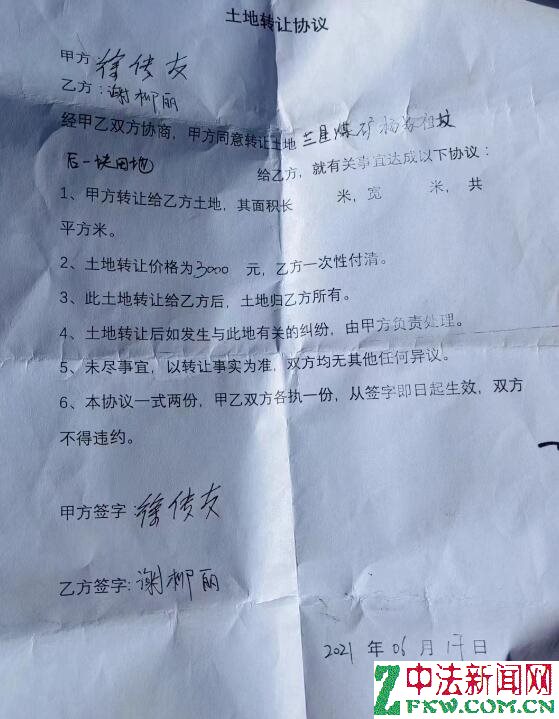 土地转让协议
甲方 徐传友
乙方：谢柳丽
经甲乙双方协商，甲方同意转让土地 兰星煤矿杨家祖坟
后一块田地 给乙方，就有关事宜达成以下协议：
1、甲方转让给乙方土地，其面积长 米，宽 米，共
平方米。
2、土地转让价格为3000 元，乙方一次性付清。
3、此土地转让给乙方后，土地归乙方所有。
4、土地转让后如发生与此地有关的纠纷，由甲方负责处理。
5、未尽事宜，以转让事实为准，双方均无其他任何异议。
6、本协议一式两份，甲乙双方各执一份，从签字即日起生效，双方
不得违约。
甲方签字：徐传友
乙方签字：谢柳丽
2021 年 06 月 17 日
中法新闻网
ZFKW.COM.CN